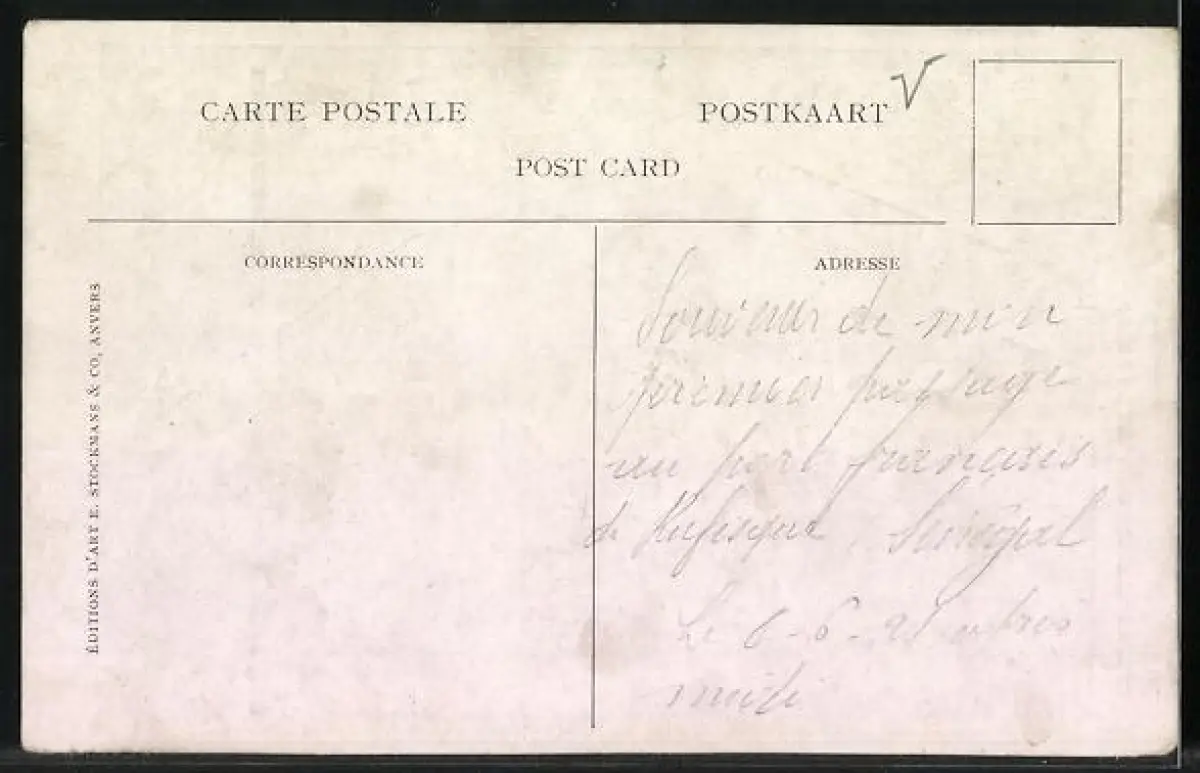 CARTE POSTALE
POSTKAART
POST CARD
CORRESPONDANCE
ÉDITIONS D'ART E. STOCKMANS & CO, ANVERS
ADRESSE
Souvenir de mon
premier passage
au port français
de Rufisque, Sénégal
Le 6-6- après
midi